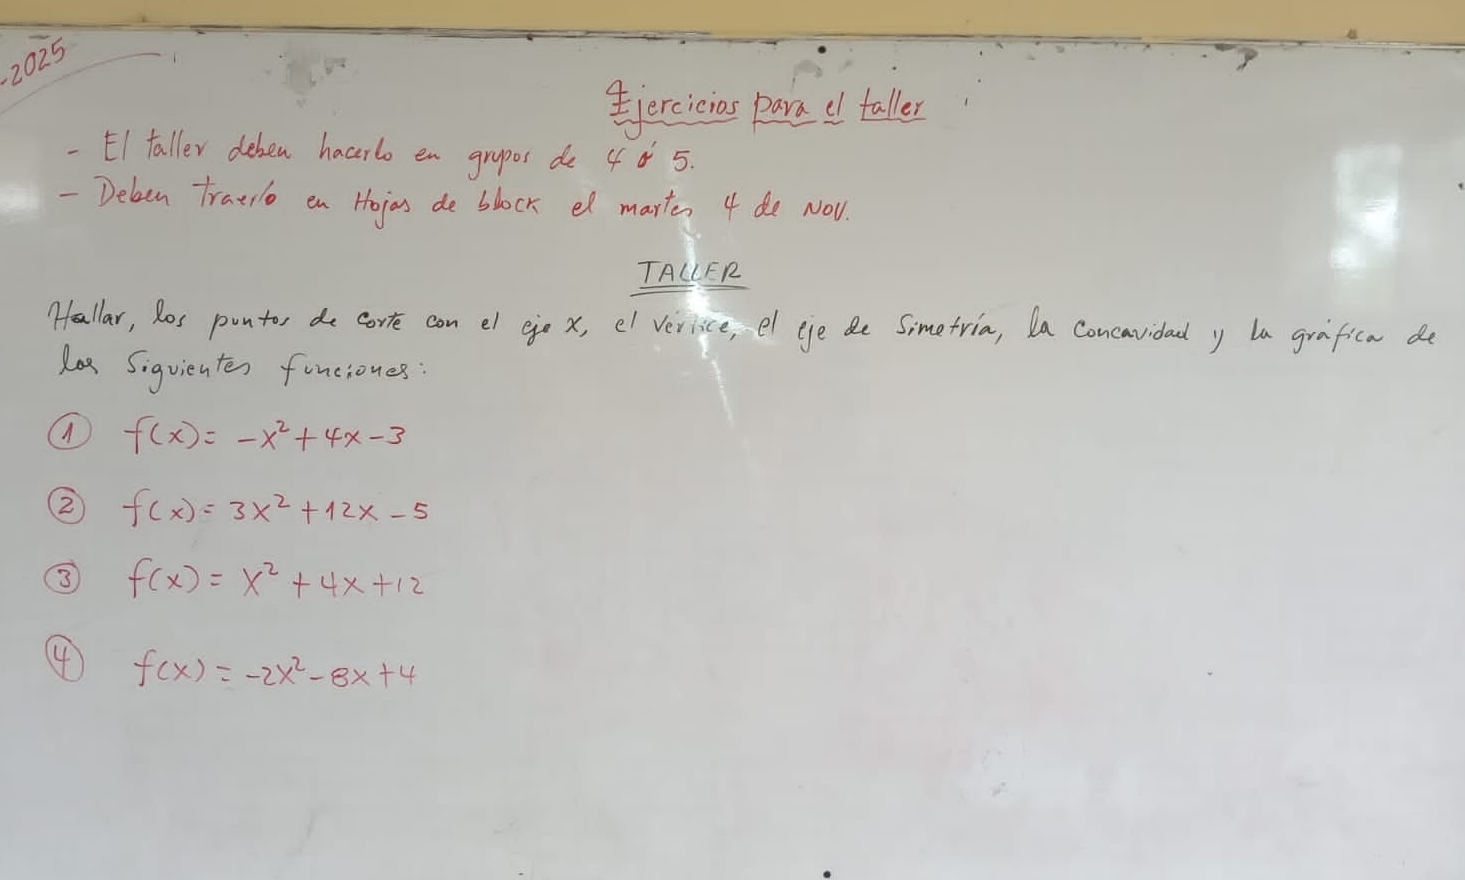 -2025
Ejercicios para el taller
- El taller deben hacerlo en grupos de 4 ó 5.
- Deben traerlo en Hojas de block el martes 4 de NOV.
TALLER
Hallar, los puntos de corte con el eje X, el vértice, el eje de Simetría, la Concavidad y la gráfica de
las Siguientes funciones:
① f(x) = -x² + 4x - 3
② f(x) = 3x² + 12x - 5
③ f(x) = x² + 4x + 12
④ f(x) = -2x² - 8x + 4